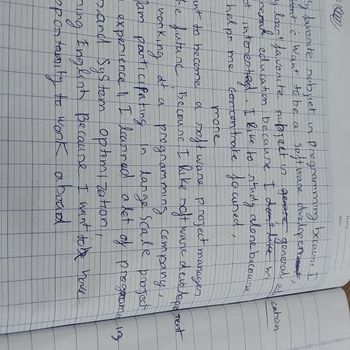 My favorite subject is programming because I
want to be a software developer
my least favorite subject is general e
education because I don't like h
t interested. I like to study alone because
helpme concentrate focused,
more
nt to become a software project manager
he future Because I like software development
working at a programming company,
am participating in large scale project
experience, I learned alot of programming
and system optimization,
ning English Because I want to have
opportunity to work abroad